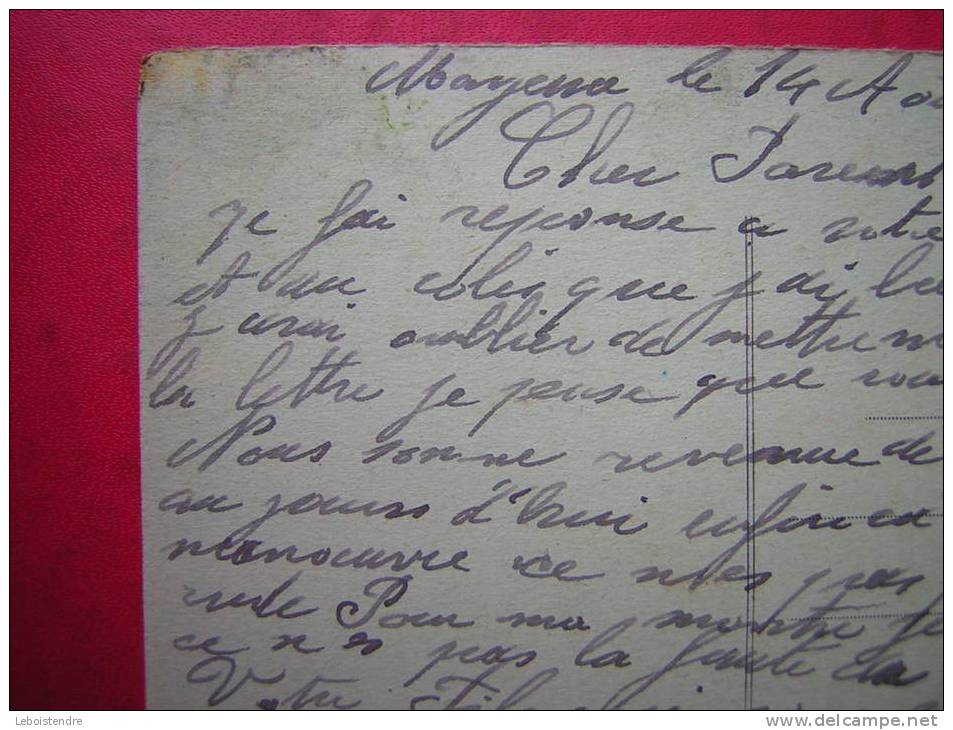 Mayence le 14 Aou
Cher Parent
je fai reponse a votre
et au colis que j ai
j avai oublier de mettre
la lettre je pense que vou
Nous somme revenue de
au jours d'hui enfin ca
manouvre ce n es pas
rude Pour ma montre je
ce n es pas la faute du
Votre Fils
Leboistendre
www.delcampe.net